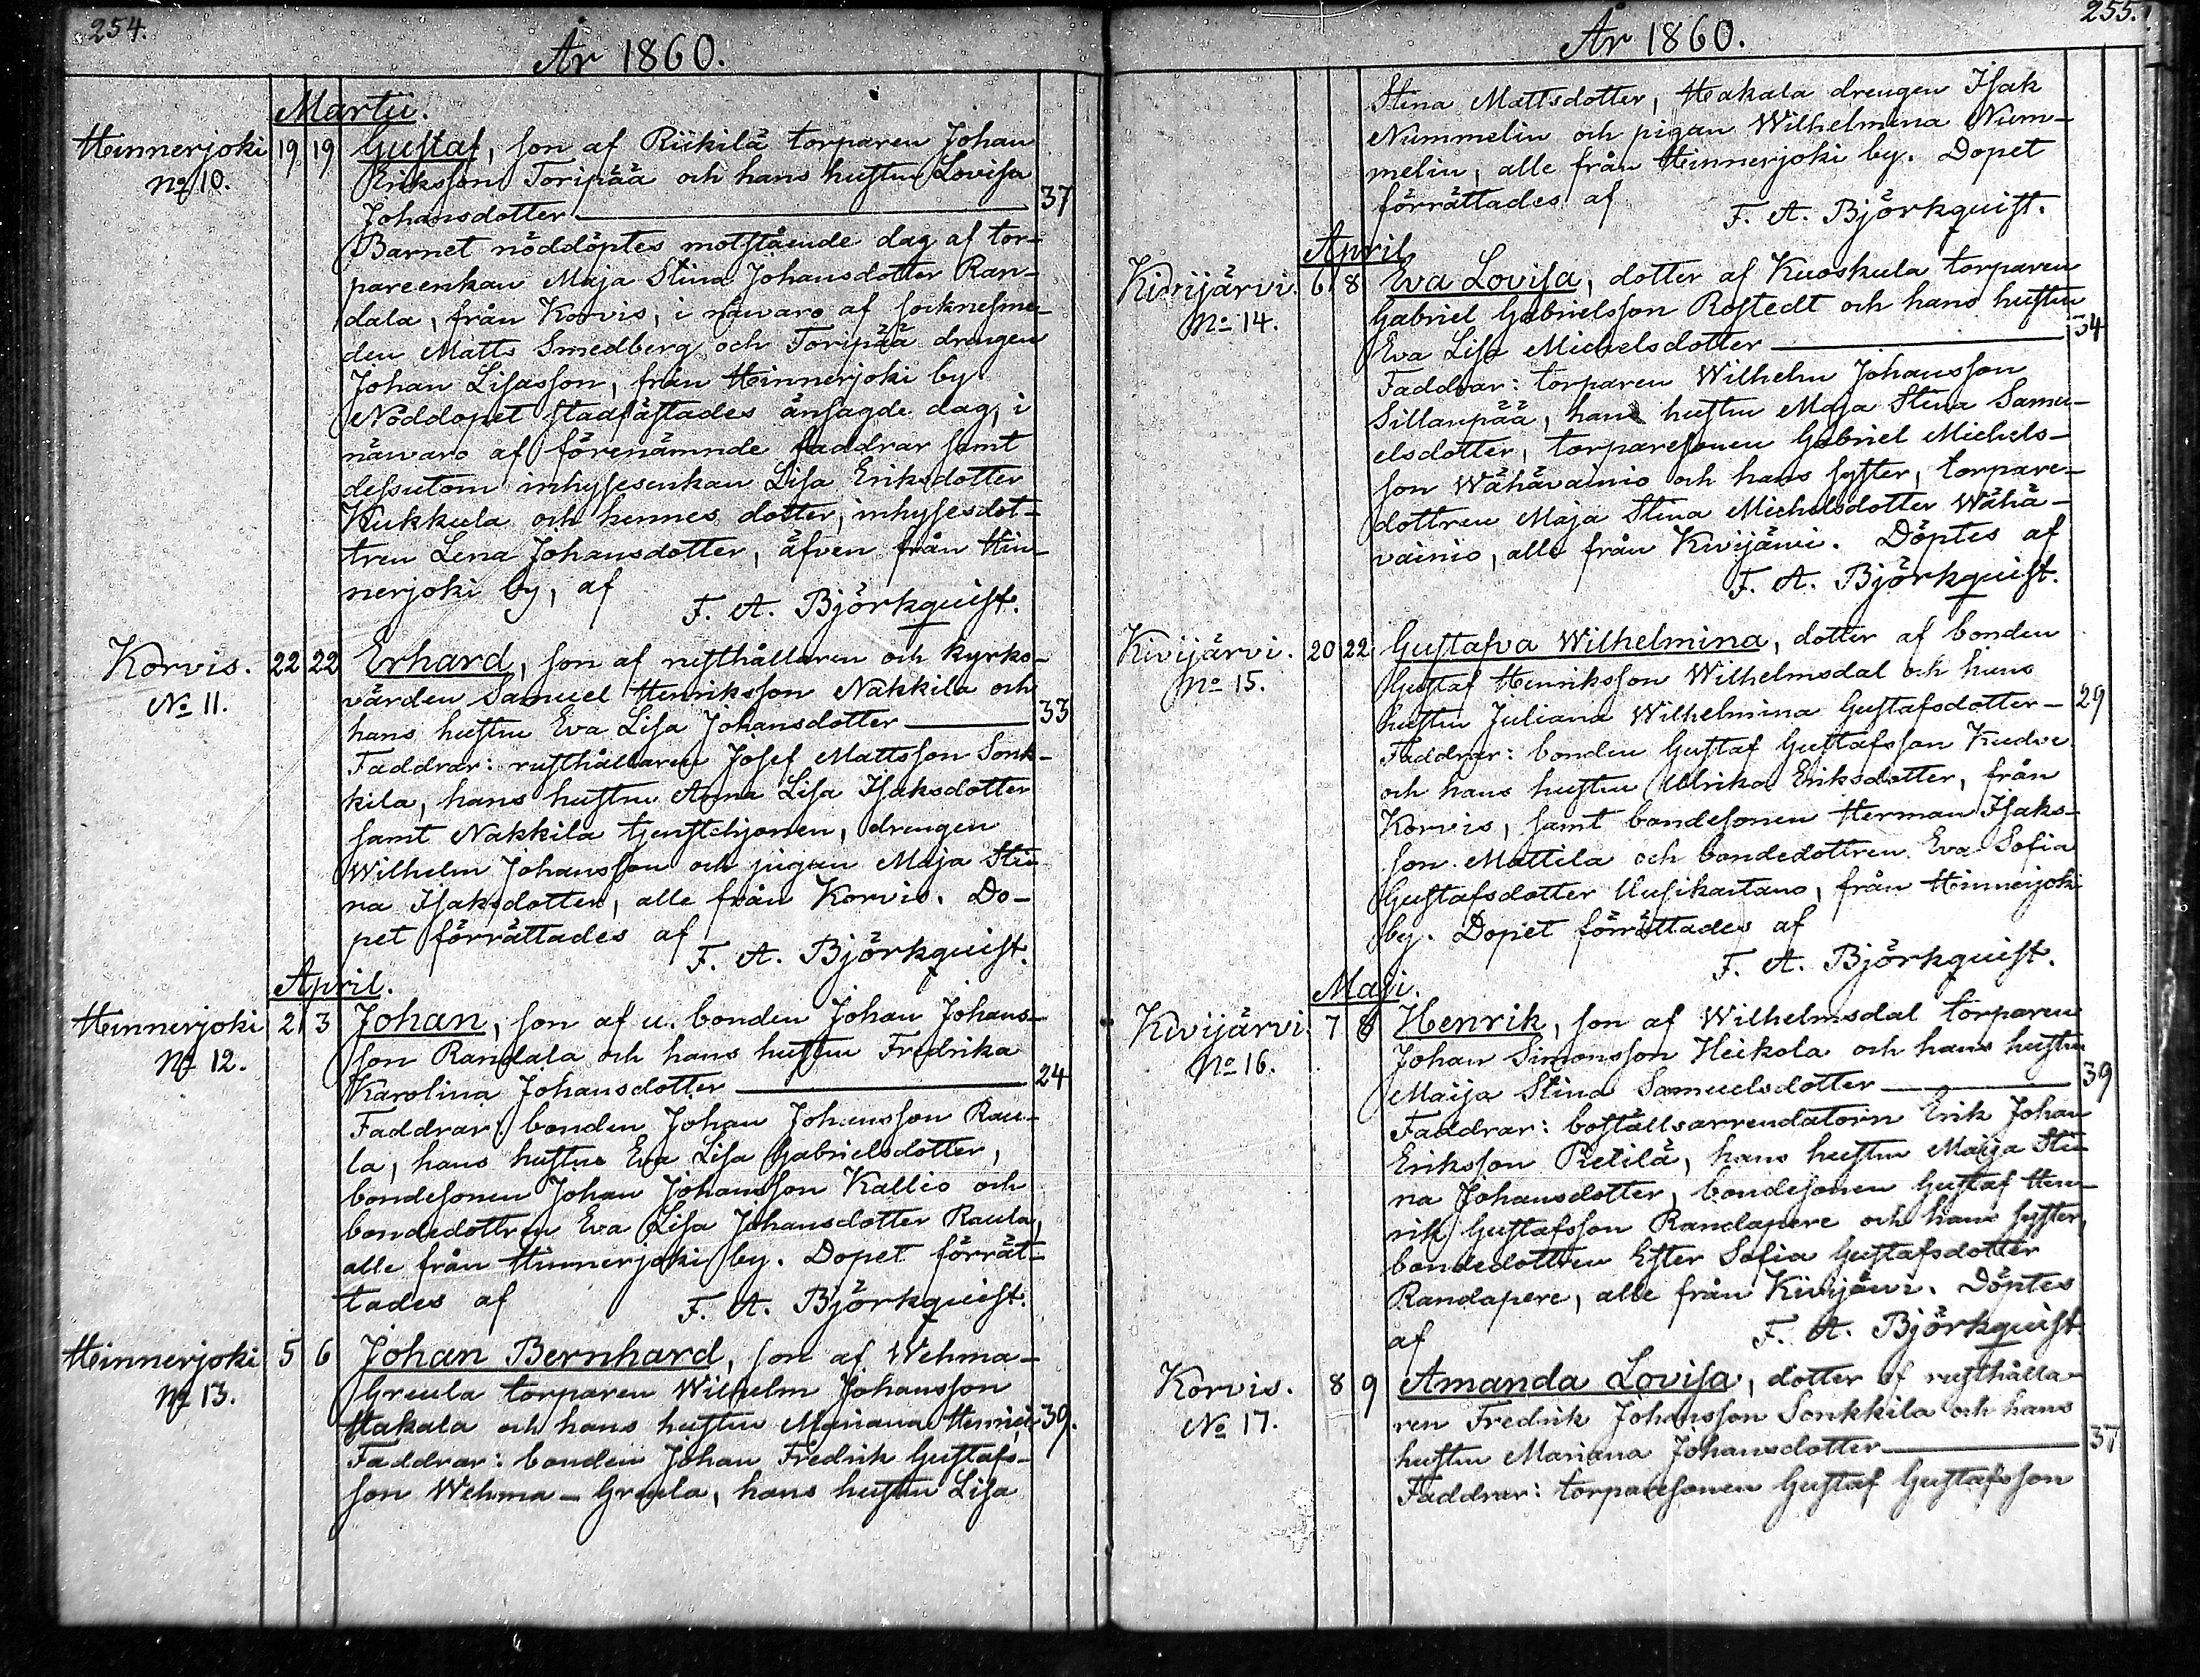 254.
År 1860.
Martii.
Hinnerjoki
No 10.
19 19 Gustaf, son af Riikilä torparen Johan
Eriksson Toripää och hans hustru Lovisa
Johansdotter 37
Barnet nöddöptes motstående dag af tor-
pareenkan Maja Stina Johansdotter Ran-
dala, från Korvis, i närvaro af socknesme-
den Matts Smedberg och Toripää drengen
Johan Lisasson, från Hinnerjoki by
Nöddopet stadfästades ansagde dag, i
närvaro af förenämnde faddrar samt
dessutom inhysesenkan Lisa Eriksdotter
Kukkula och hennes dotter, inhysesdot-
tren Lena Johansdotter, äfven från Hin-
nerjoki by, af
F. A. Björkquist.
Korvis.
No 11.
22 22 Erhard, son af rusthållaren och kyrko-
värden Samuel Henriksson Nakkila och
hans hustru Eva Lisa Johansdotter 33
Faddrar: rusthållaren Josef Mattsson Sonk-
kila, hans hustru Anna Lisa Isaksdotter
samt Nakkila tjensthjonen, drengen
Wilhelm Johansson och pigan Maja Sti-
na Isaksdotter, alle från Korvis. Do-
pet förrättades af
F. A. Björkquist.
April.
Hinnerjoki
No 12.
2 3 Johan, son af u. bonden Johan Johans-
son Randala och hans hustru Fredrika
Karolina Johansdotter 24
Faddrar: bonden Johan Johansson Rau-
la, hans hustru Eva Lisa Gabrielsdotter,
bondesonen Johan Johansson Kallio och
bondedottren Eva Lisa Johansdotter Raula,
alle från Hinnerjoki by. Dopet förrät-
tades af
F. A. Björkquist.
Hinnerjoki
No 13.
5 6 Johan Bernhard, son af Wehma-
Greula torparen Wilhelm Johansson
Hakala och hans hustru Mariana 39.
Faddrar: bonden Johan Fredrik Gustafs-
son Wehma-Greula, hans hustru Lisa
255.
År 1860.
Stina Mattsdotter, Hakala drengen Isak
Nummelin och pigan Wilhelmina Num-
melin, alle från Hinnerjoki by. Dopet
förrättades af
F. A. Björkquist.
April
Kivijärvi.
No 14.
6 8 Eva Lovisa, dotter af Kuoskula torparen
Gabriel Gabrielsson Rostedt och hans hustru
Eva Lisa Michelsdotter 34
Faddrar: torparen Wilhelm Johansson
Sillanpää, hans hustru Maja Stina Samu-
elsdotter, torparesonen Gabriel Michels-
son Wähävainio och hans syster, torpare-
dottren Maja Stina Michelsdotter Wähä-
vainio, alle från Kivijärvi. Döptes af
F. A. Björkquist.
Kivijärvi.
No 15.
20 22 Gustafva Wilhelmina, dotter af bonden
Gustaf Henriksson Wilhelmsdal och hans
hustru Juliana Wilhelmina Gustafsdotter- 29
Faddrar: bonden Gustaf Gustafsson Kudve
och hans hustru Ulrika Eriksdotter, från
Korvis, samt bondesonen Herman Isaks-
son Mattila och bondedottren Eva Sofia
Gustafsdotter Uusikartano, från Hinnerjoki
by. Dopet förrättades af
F. A. Björkquist.
Maji.
Kivijärvi
No 16.
7 8 Henrik, son af Wilhelmsdal torparen
Johan Simonsson Heikola och hans hustru
Maija Stina Samuelsdotter 39
Faddrar: boställsarrendatorn Erik Johan
Eriksson Pietilä, hans hustru Maija Sti-
na Johansdotter, bondesonen Gustaf Hen-
rik Gustafsson Randapere och hans syster,
bondedottren Ester Sofia Gustafsdotter
Randapere, alle från Kivijärvi. Döptes
af
F. A. Björkquist
Korvis.
No 17.
8 9 Amanda Lovisa, dotter af rusthålla-
ren Fredrik Johansson Sonkkila och hans
hustru Mariana Johansdotter 37
Faddrar: torparesonen Gustaf Gustafsson